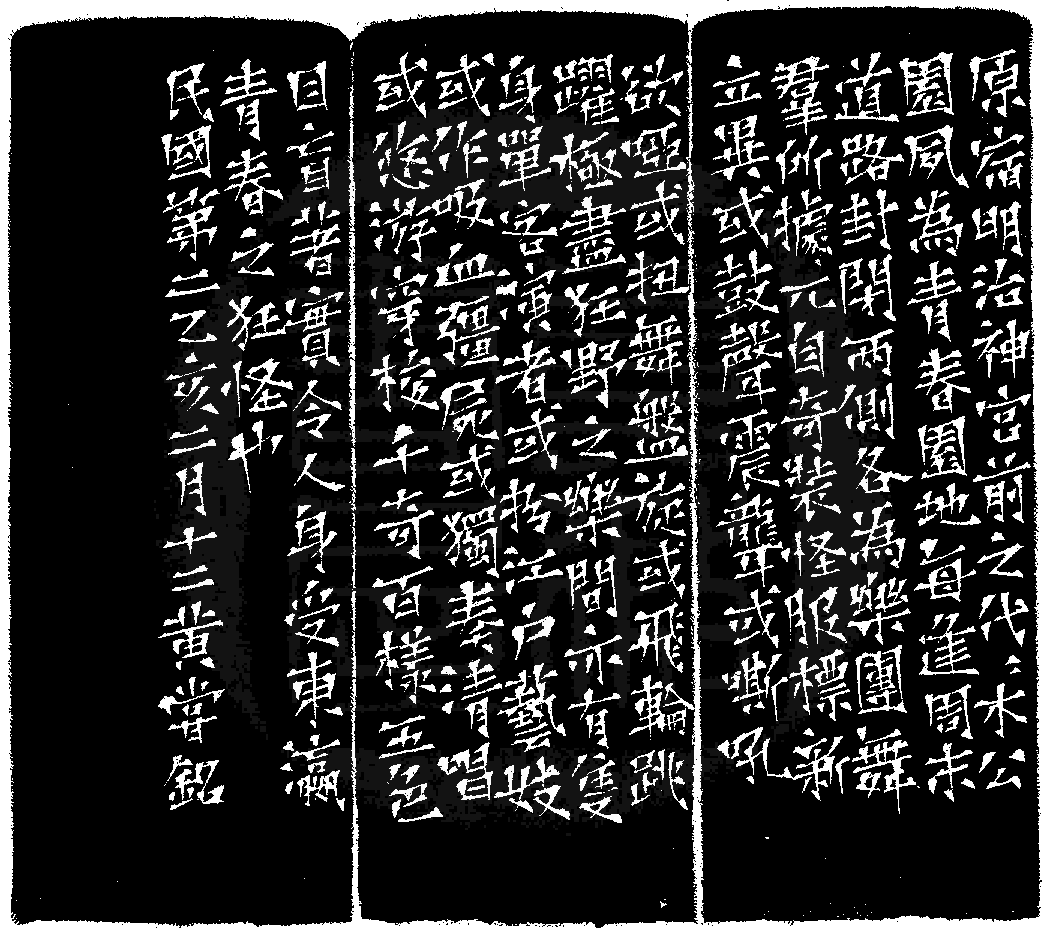 原宿明治神宮前之代々木公
園夙為青春園地每逢周末
道路封閉兩側各為樂團舞
羣所據元自奇裝怪服標新
立異或鼓聲震聾或嘶吼
欲啞或扭舞盤旋或飛輪跳
躍極盡狂野之樂間亦有隻
身單客演者或扮江戶藝妓
或作吸血殭屍或獨奏清唱
或悠游穿梭千奇百樣五色
目盲著實令人身受東瀛
青春之狂怪中
民國第二乙亥二月十二黃嘗銘